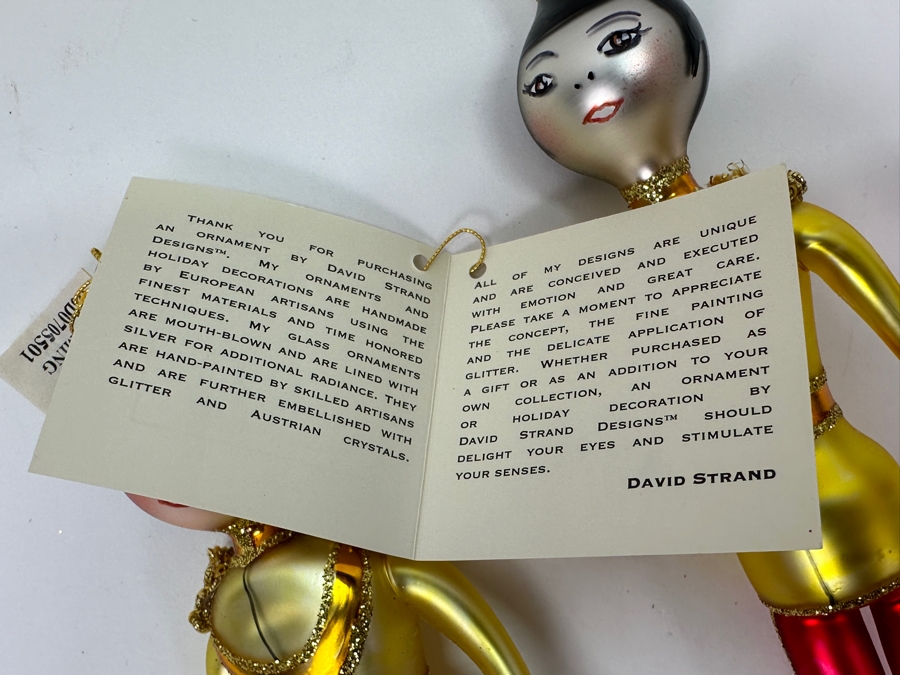 THANK YOU FOR PURCHASING
AN ORNAMENT BY DAVID STRAND
DESIGNS™. MY ORNAMENTS AND
HOLIDAY DECORATIONS ARE HANDMADE
BY EUROPEAN ARTISANS USING THE
FINEST MATERIALS AND TIME HONORED
TECHNIQUES. MY GLASS ORNAMENTS
ARE MOUTH-BLOWN AND ARE LINED WITH
SILVER FOR ADDITIONAL RADIANCE. THEY
ARE HAND-PAINTED BY SKILLED ARTISANS
AND ARE FURTHER EMBELLISHED WITH
GLITTER AND AUSTRIAN CRYSTALS.
ALL OF MY DESIGNS ARE UNIQUE
AND ARE CONCEIVED AND EXECUTED
WITH EMOTION AND GREAT CARE.
PLEASE TAKE A MOMENT TO APPRECIATE
THE CONCEPT, THE FINE PAINTING
AND THE DELICATE APPLICATION OF
GLITTER. WHETHER PURCHASED AS
A GIFT OR AS AN ADDITION TO YOUR
OWN COLLECTION, AN ORNAMENT
OR HOLIDAY DECORATION BY
DAVID STRAND DESIGNS™ SHOULD
DELIGHT YOUR EYES AND STIMULATE
YOUR SENSES.
DAVID STRAND